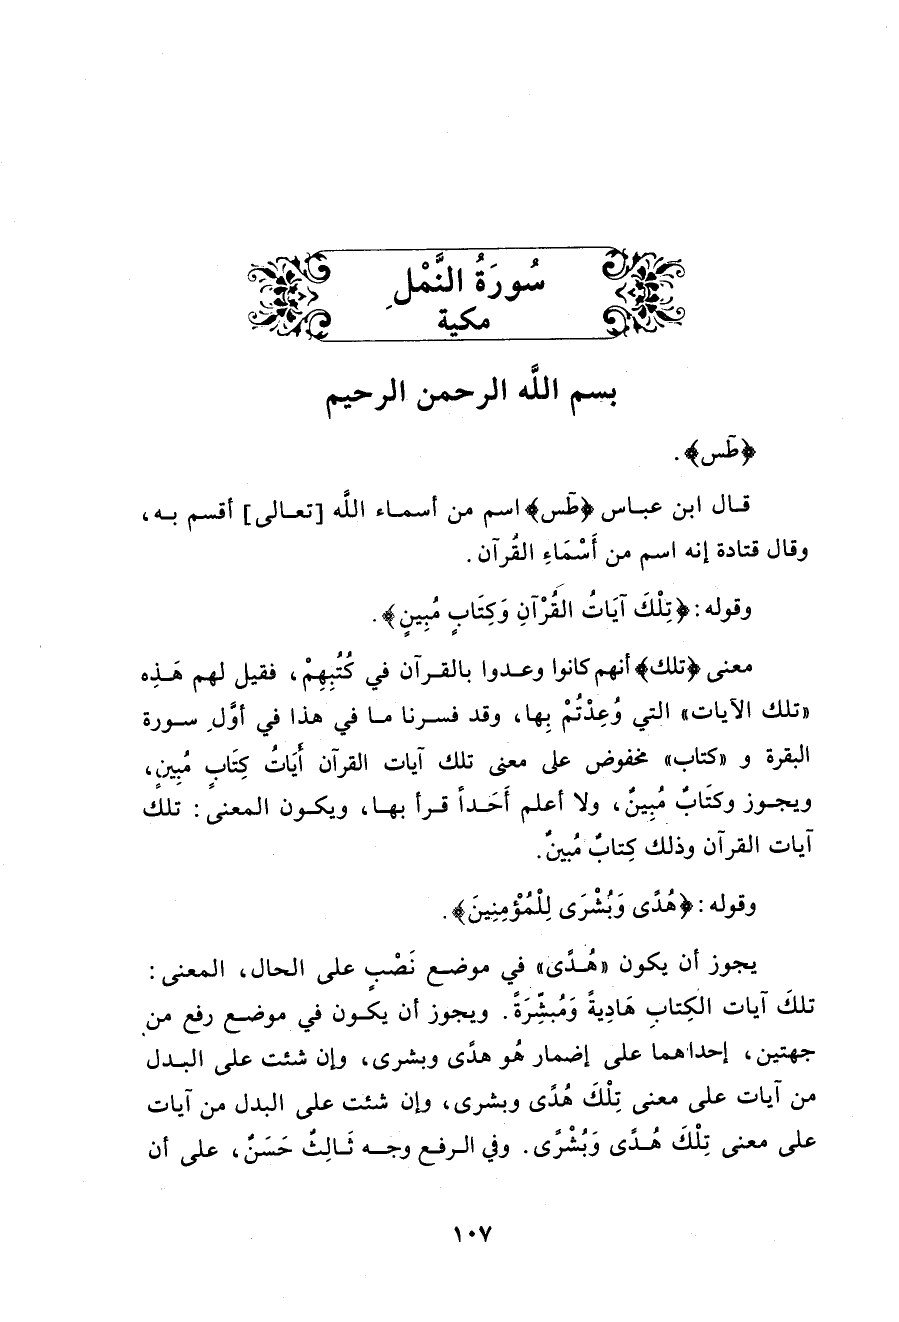 سُورَةُ النَّمْلِ
مكية
بسم اللَّه الرحمن الرحيم
﴿طَس﴾.
قـال ابن عبـاس ﴿طَس﴾ اسم من أسمـاء اللَّه [تعـالى] أقسم بـه،
وقال قتادة إنه اسم من أَسْمَاءِ القُرآن.
وقوله: ﴿تِلْكَ آيَاتُ القُرْآنِ وَكِتَابٍ مُبِينٍ﴾.
معنى ﴿تلك﴾ أنهم كانوا وعـدوا بالقـرآن في كُتُبِهِمْ، فقيل لهم هَـذِه
«تلك الآيات» التي وُعِدْتُمْ بِها، وقد فسرنا مـا في هذا في أوَّلِ سـورة
البقرة و «كتاب» مخفوض على معنى تلك آيات القرآن أَيَاتُ كِتَابٍ مُبِينٍ،
ويجـوز وكتَابٌ مُبِينٌ، ولا أعلم أَحَـداً قـرأ بهـا، ويكـون المعنى: تلك
آيات القرآن وذلك كِتابٌ مُبينٌ.
وقوله: ﴿هُدًى وَبُشْرَى لِلْمُؤْمِنِينَ﴾.
يجوز أن يكون «هُـدًى» في موضع نَصْبٍ على الحال، المعنى:
تلكَ آيات الكِتابِ هَادِيةً وَمُبشِّرَةً. ويجوز أن يكـون في موضـع رفع من
جهتين، إحداهما على إضمار هُو هدًى وبشرى، وإن شئت على البـدل
من آيات على معنى تِلْكَ هُدًى وبشرى، وإن شئت على البدل من آيات
على معنى تِلْكَ هُـدًى وَبُشْرًى. وفي الـرفـع وجـه ثَـالِثٌ حَسَنٌ، على أن
١٠٧